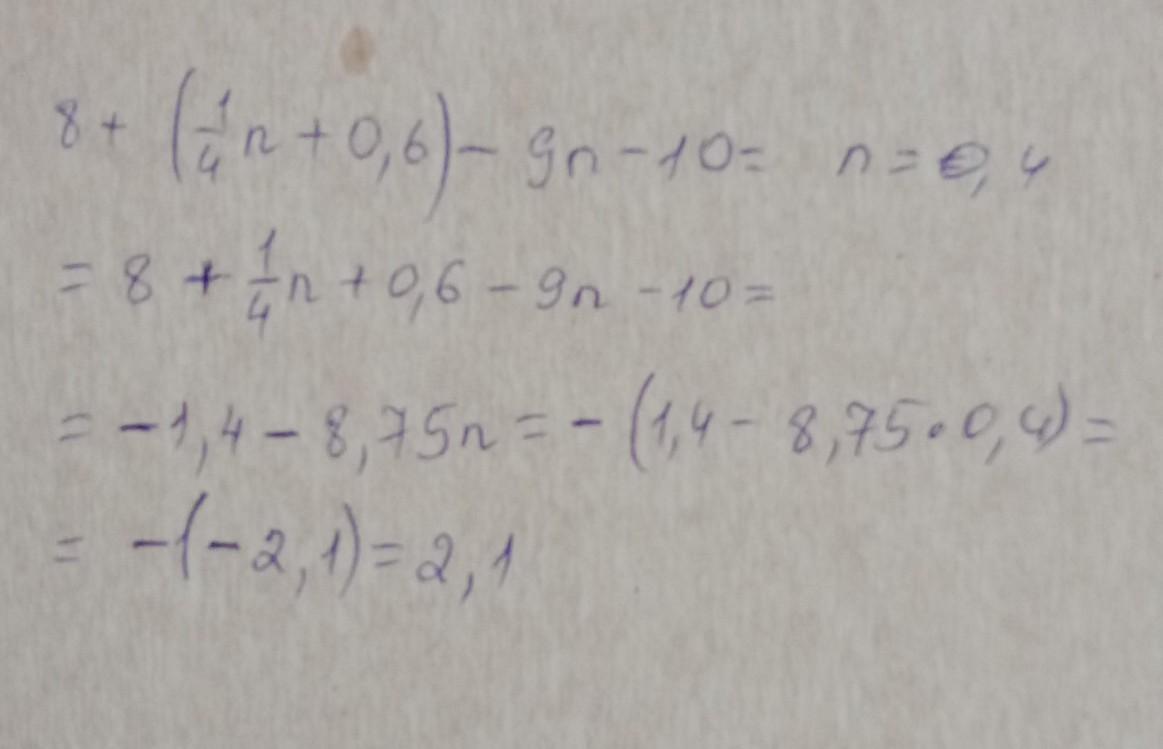 8 + (1/4 n + 0,6) - 9n - 10 = n = 0,4
= 8 + 1/4 n + 0,6 - 9n - 10 =
= -1,4 - 8,75n = - (1,4 - 8,75 · 0,4) =
= -(-2,1) = 2,1